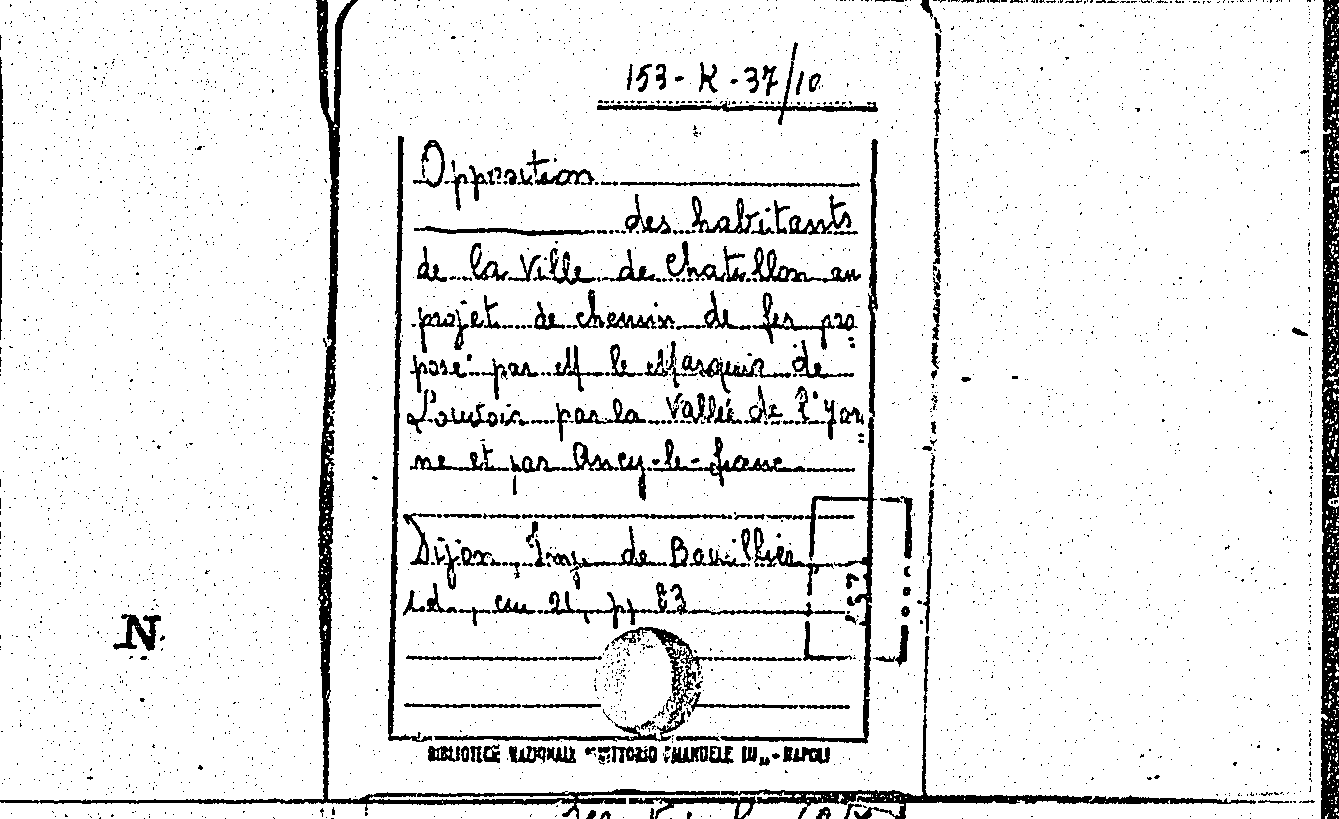 153-K-37/10
Opposition
des habitants
de la Ville de Chatillon au
projet de chemin de fer pro
posé par M le Marquis de
Louvois par la Vallée de l'Yon
ne et par Ancy-le-franc
Dijon, Imp. de Bouillier
s.d., cm 21, pp 23
N
BIBLIOTECA NAZIONALE "VITTORIO EMANUELE III" - NAPOLI